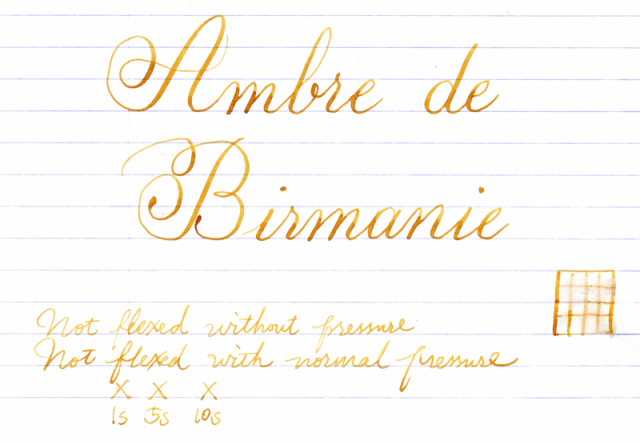 Ambre de
Birmanie
Not flexed without pressure
Not flexed with normal pressure
X X X
1s 5s 10s